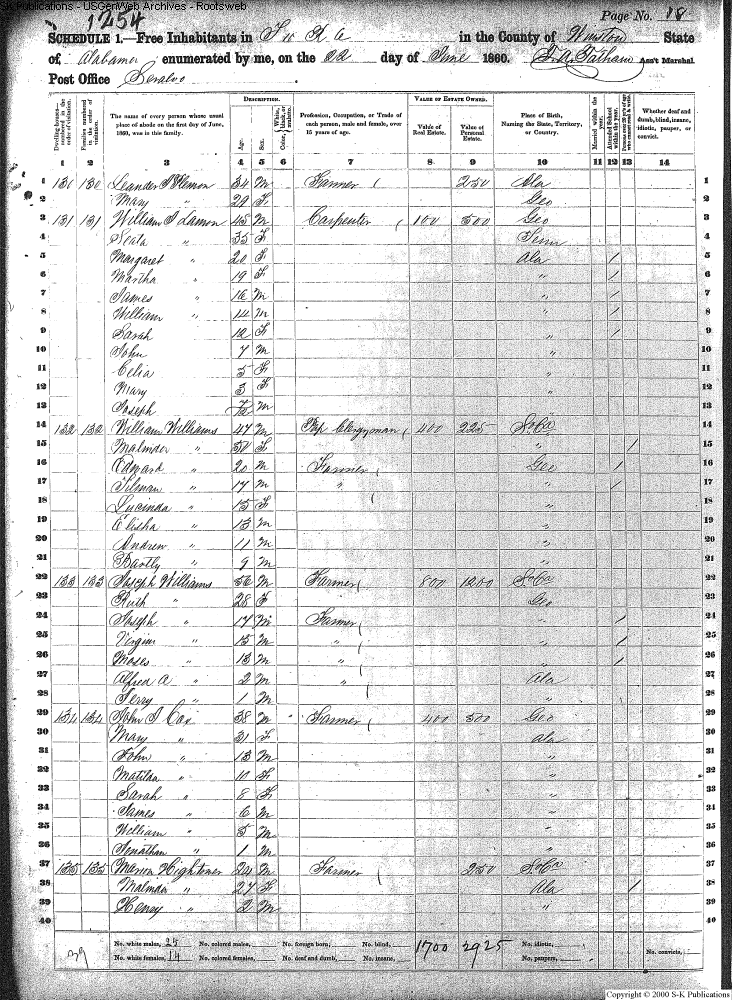 S-K Publications - USGenWeb Archives - Rootsweb
1254
Page No. 18
SCHEDULE 1.—Free Inhabitants in in the County of Winston State
of Alabama enumerated by me, on the 22 day of June 1860. Ass't Marshal.
Post Office
Dwelling-houses— numbered in the order of visitation.
Families numbered in the order of visitation.
The name of every person whose usual place of abode on the first day of June, 1860, was in this family.
DESCRIPTION.
Age.
Sex.
Color, White, black, or mulatto.
Profession, Occupation, or Trade of each person, male and female, over 15 years of age.
VALUE OF ESTATE OWNED.
Value of Real Estate.
Value of Personal Estate.
Place of Birth, Naming the State, Territory, or Country.
Married within the year.
Attended School within the year.
Whether deaf and dumb, blind, insane, idiotic, pauper, or convict.
1 2 3 4 5 6 7 8 9 10 11 12 13 14
1 130 130 Leander 34 M Farmer 250 Ala 1
2 Mary " 29 F Geo 2
3 131 131 William Lamon 45 M Carpenter 100 500 Geo 3
4 " 35 F Tenn 4
5 Margaret " 20 F Ala / 5
6 Martha " 19 F " / 6
7 James " 16 M " / 7
8 William " 14 M " / 8
9 Sarah 12 F " / 9
10 John 7 M " 10
11 Celia 5 F " 11
12 Mary 3 F " 12
13 Joseph M 13
14 132 132 William Williams 47 M Clergyman 400 225 So Ca 14
15 " 50 F " / 15
16 Edward " 20 M Farmer Geo / 16
17 Tilman " 17 M " " / 17
18 Lucinda " 15 F " 18
19 Elisha " 13 M " 19
20 Andrew " 11 M " 20
21 Bartly " 9 M " 21
22 133 133 Joseph Williams 56 M Farmer 800 1200 So Ca 22
23 Ruth " 28 F Geo 23
24 Joseph " 17 M Farmer " / 24
25 " 15 M " " / 25
26 Moses " 13 M " " / 26
27 Alfred A " 2 M " Ala 27
28 " 1 M " 28
29 134 134 John Cox 38 M " Farmer 400 300 Geo 29
30 Mary " 31 F Ala 30
31 John " 13 M " 31
32 Matilda " 10 F " 32
33 Sarah " 8 F " 33
34 James " 6 M " 34
35 William " 5 M " 35
36 Jonathan " 1 M " 36
37 135 135 Marion Hightower 24 M Farmer 250 So Ca 37
38 " 27 F Ala / 38
39 Henry " 2 M " 39
40 40
39 No. white males, 25 No. colored males, No. foreign born, No. blind, 1700 2925 No. idiotic,
No. white females, 14 No. colored females, No. deaf and dumb, No. insane, No. paupers, No. convicts,
Copyright © 2000 S-K Publications